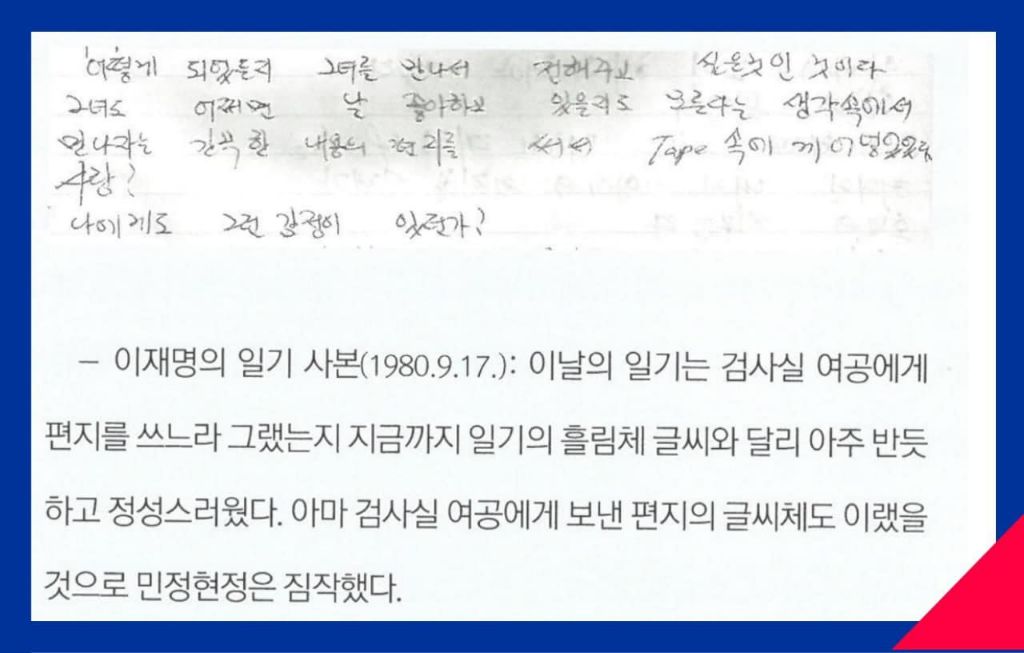 어떻게 되었든지 그녀를 만나서 전해주고 싶은것인 것이다
그녀도 어쩌면 날 좋아하고 있을지도 모른다는 생각속에서
만나자는 간곡한 내용의 편지를 써서 Tape 속에 끼어넣었
사랑?
나에게도 그런 감정이 있던가?
– 이재명의 일기 사본(1980.9.17.): 이날의 일기는 검사실 여공에게
편지를 쓰느라 그랬는지 지금까지 일기의 흘림체 글씨와 달리 아주 반듯
하고 정성스러웠다. 아마 검사실 여공에게 보낸 편지의 글씨체도 이랬을
것으로 민정현정은 짐작했다.